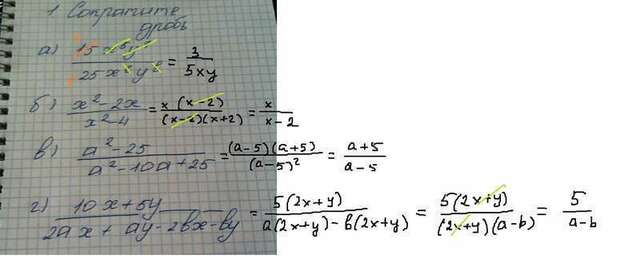 1. Сократите
дробь
а) 15x y / 25x y = 3 / 5xy
б) x²-2x / x²-4 = x(x-2) / (x-2)(x+2) = x / x-2
в) a²-25 / a²-10a+25 = (a-5)(a+5) / (a-5)² = a+5 / a-5
г) 10x+5y / 2ax+ay-2bx-by = 5(2x+y) / a(2x+y)-b(2x+y) = 5(2x+y) / (2x+y)(a-b) = 5 / a-b